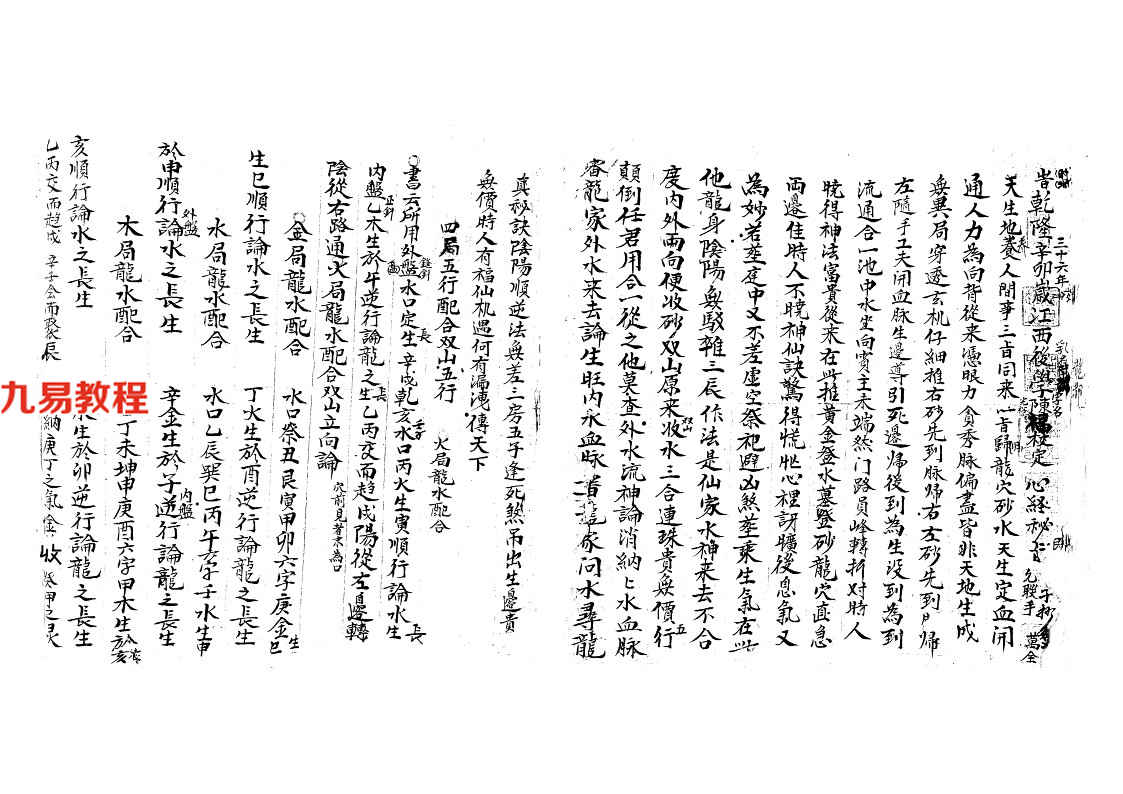 旹乾隆辛卯歲江西後學陳 校定 心経秘
三十六年
天生地養人間事三百同来一旨歸龍穴砂水天生定血開
通人力為向背從来憑眼力貪秀脉偏盡皆非天地生成
無異局穿透玄机仔細推右砂先到脉歸右左砂先到歸
左隨手工夫開血脉生邊尋引死邊歸後到為生没到為到
流通合一池中水坐向賓主未端然门路員峰轉折对時人
曉得神法富貴從来在此推黄金登水墓登砂龍穴直急
両邊佳時人不曉神仙訣驚得慌忙心裡訝曠後息氣又
為妙若塟庭中又不差虚空祭祀避凶煞塟乘生氣在此
他龍身陰陽無駁雜三辰作法是仙家水神来去不合
度内外両向便收砂双山原来收水三合連珠貴無價行
顛倒任君用合一從之他莫查外水流神論消納上水血脉
審龍家外水来去論生旺内水血脉 家问水尋龍
真秘訣陰陽順逆法無差三房五子逢死煞吊出生邊貴
無價時人有福仙机遇何有漏洩傳天下
四局五行配合双山五行
火局龍水配合
○書云所用外盤水口定生辛戌乾亥水口丙火生寅順行論水生
長
縫針
内盤乙木生於午逆行論龍之生乙丙交而趋戌陽從左邊轉
長
正針
陰從右路通火局龍水配合双山立向論
穴前見者亦為口
○金局龍水配合
水口癸丑艮寅甲卯六字庚金巳
生
生巳順行論水之長生
丁火生於酉逆行論龍之長生
水局龍水配合
水口乙辰巽巳丙午六字水生申
於申順行論水之長生
外盤
辛金生於子逆行論龍之長生
内盤
木局龍水配合
丁未坤申庚酉六字甲木生於亥
亥順行論水之長生
水生於卯逆行論龍之長生
乙丙交而趋戌 辛壬会而聚辰
納庚丁之氣金 收癸甲之灵
九易教程